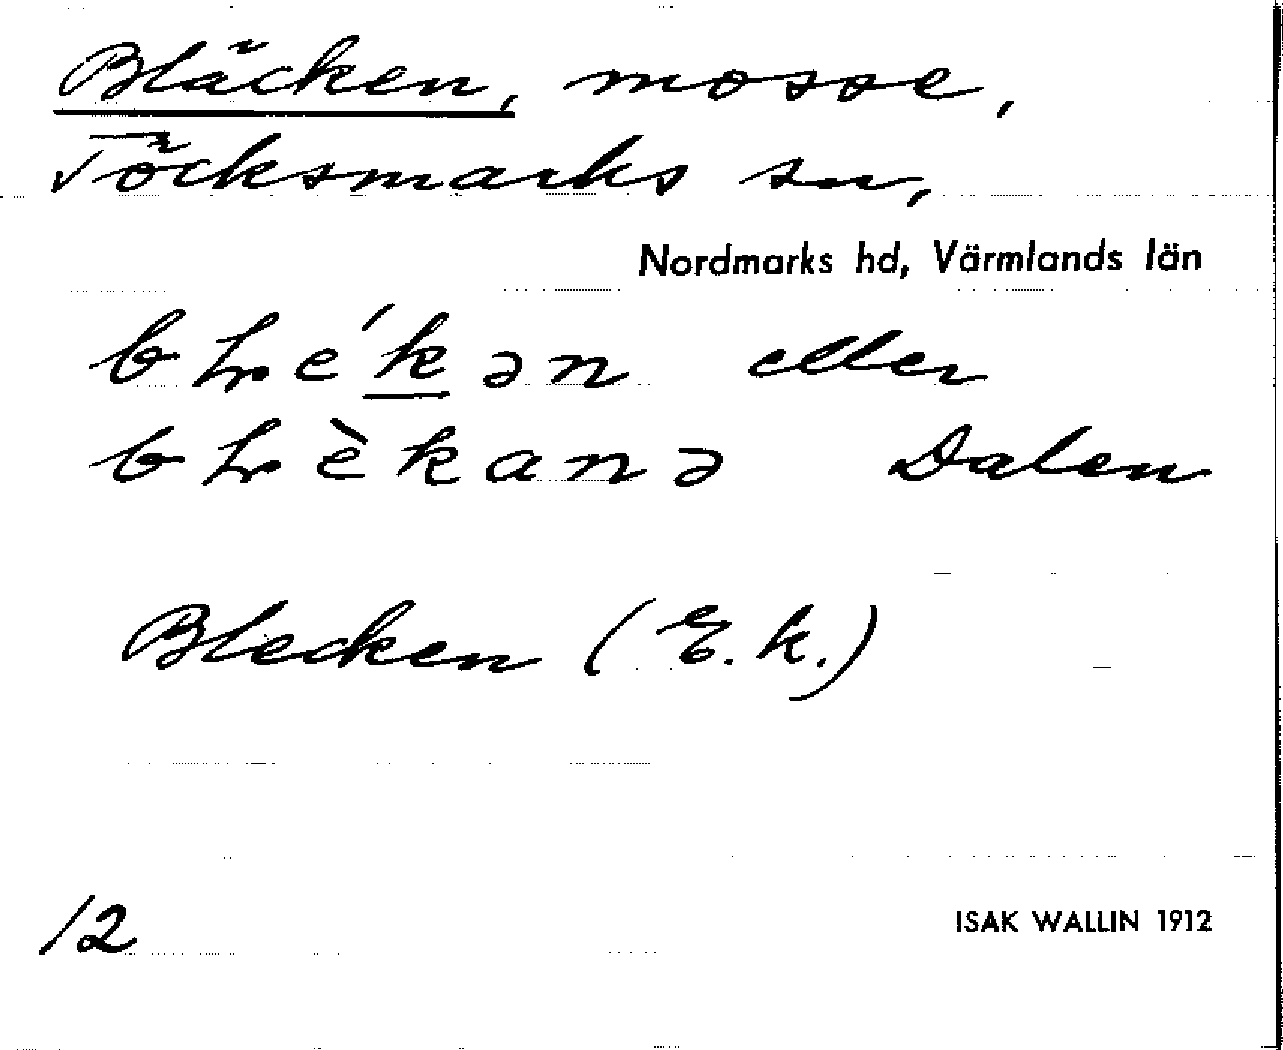 Bläcken, mosse,
Töcksmarks sn,
Nordmarks hd, Värmlands län
bɽe´kən eller
bɽèkanə Dalen
Blecken (E.k.)
12
ISAK WALLIN 1912